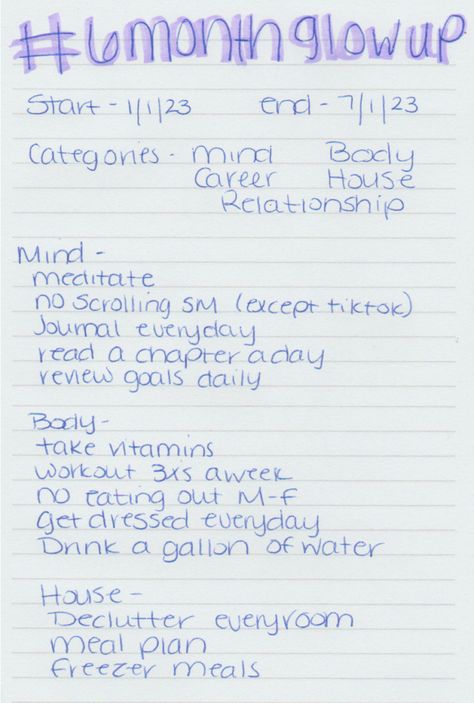 #6monthglowup
Start - 1/1/23 end - 7/1/23
Categories - mind Body
Career House
Relationship
Mind -
meditate
no scrolling SM (except tiktok)
Journal everyday
read a chapter a day
review goals daily
Body -
take vitamins
workout 3xs a week
no eating out M-F
get dressed everyday
Drink a gallon of water
House -
Declutter everyroom
meal plan
freezer meals